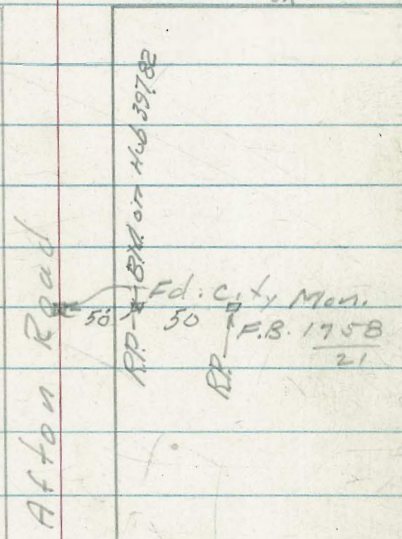 Afton Road
R.P. B.M. on Hub 397.82
Fd. City Mon.
50 50
F.B. 1758
21
R.P.